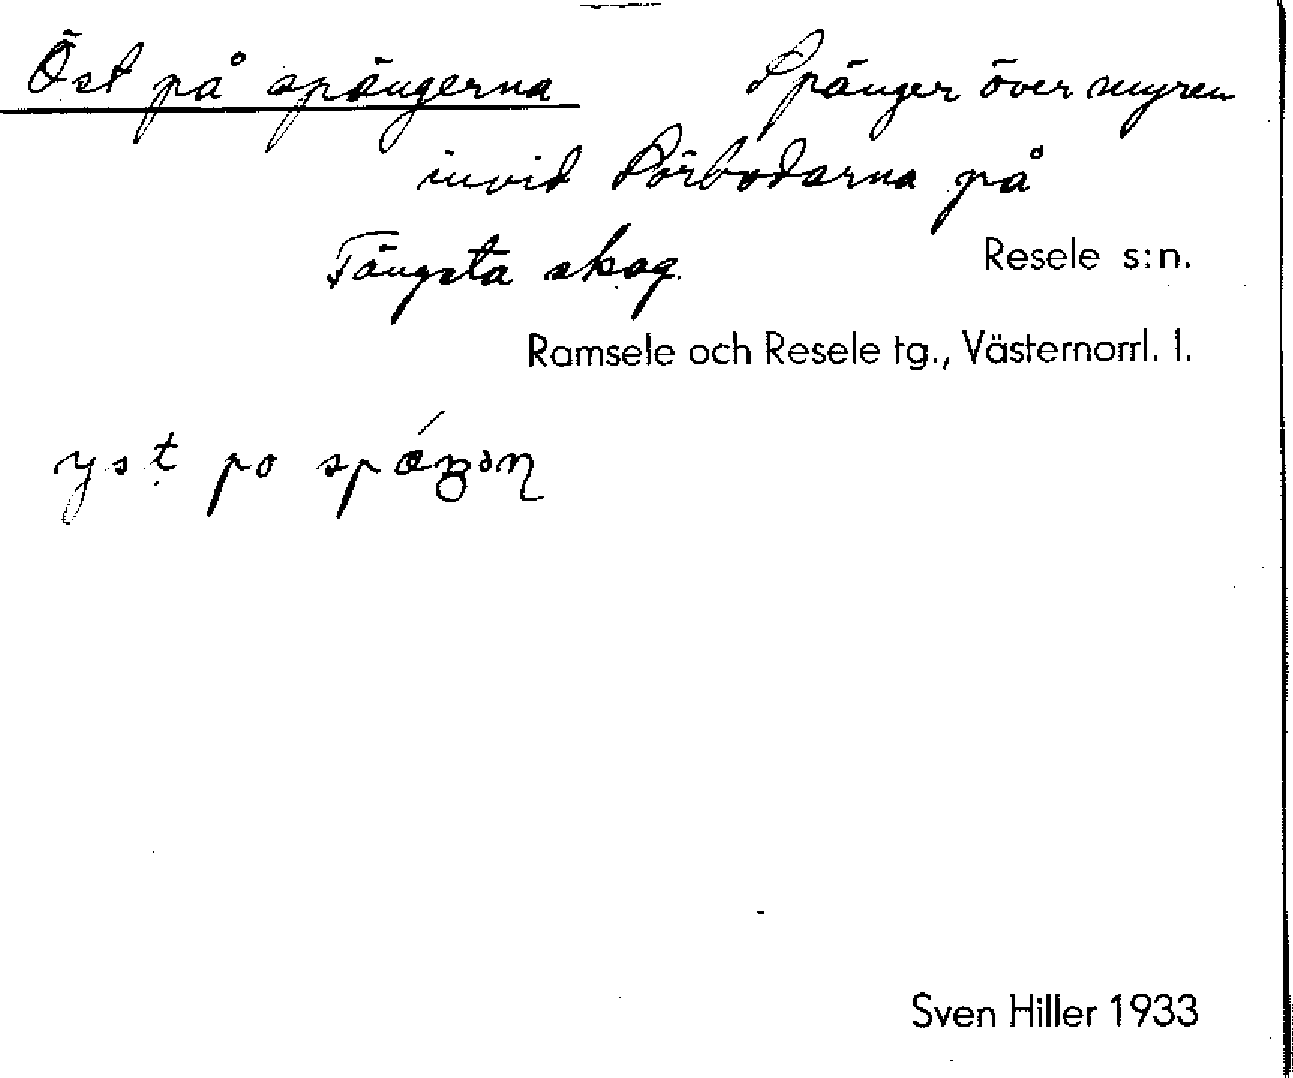 Öst på spängerna Spänger över myren
invid Pörbodarna på
Tängsta skog. Resele s:n.
Ramsele och Resele tg., Västernorrl. l.
yst po
Sven Hiller 1933